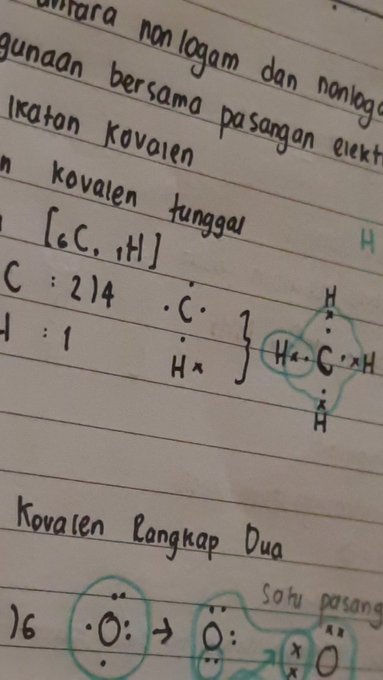 antara nonlogam dan nonloga
gunaan bersama pasangan elekt
Ikatan Kovalen
n kovalen tunggal
[₆C, ₁H]
C : 2)4 ·C·
: 1 H×
H
H
H×·C·×H
H
Kovalen Rangkap Dua
satu pasang
)6 ·O: → O: O